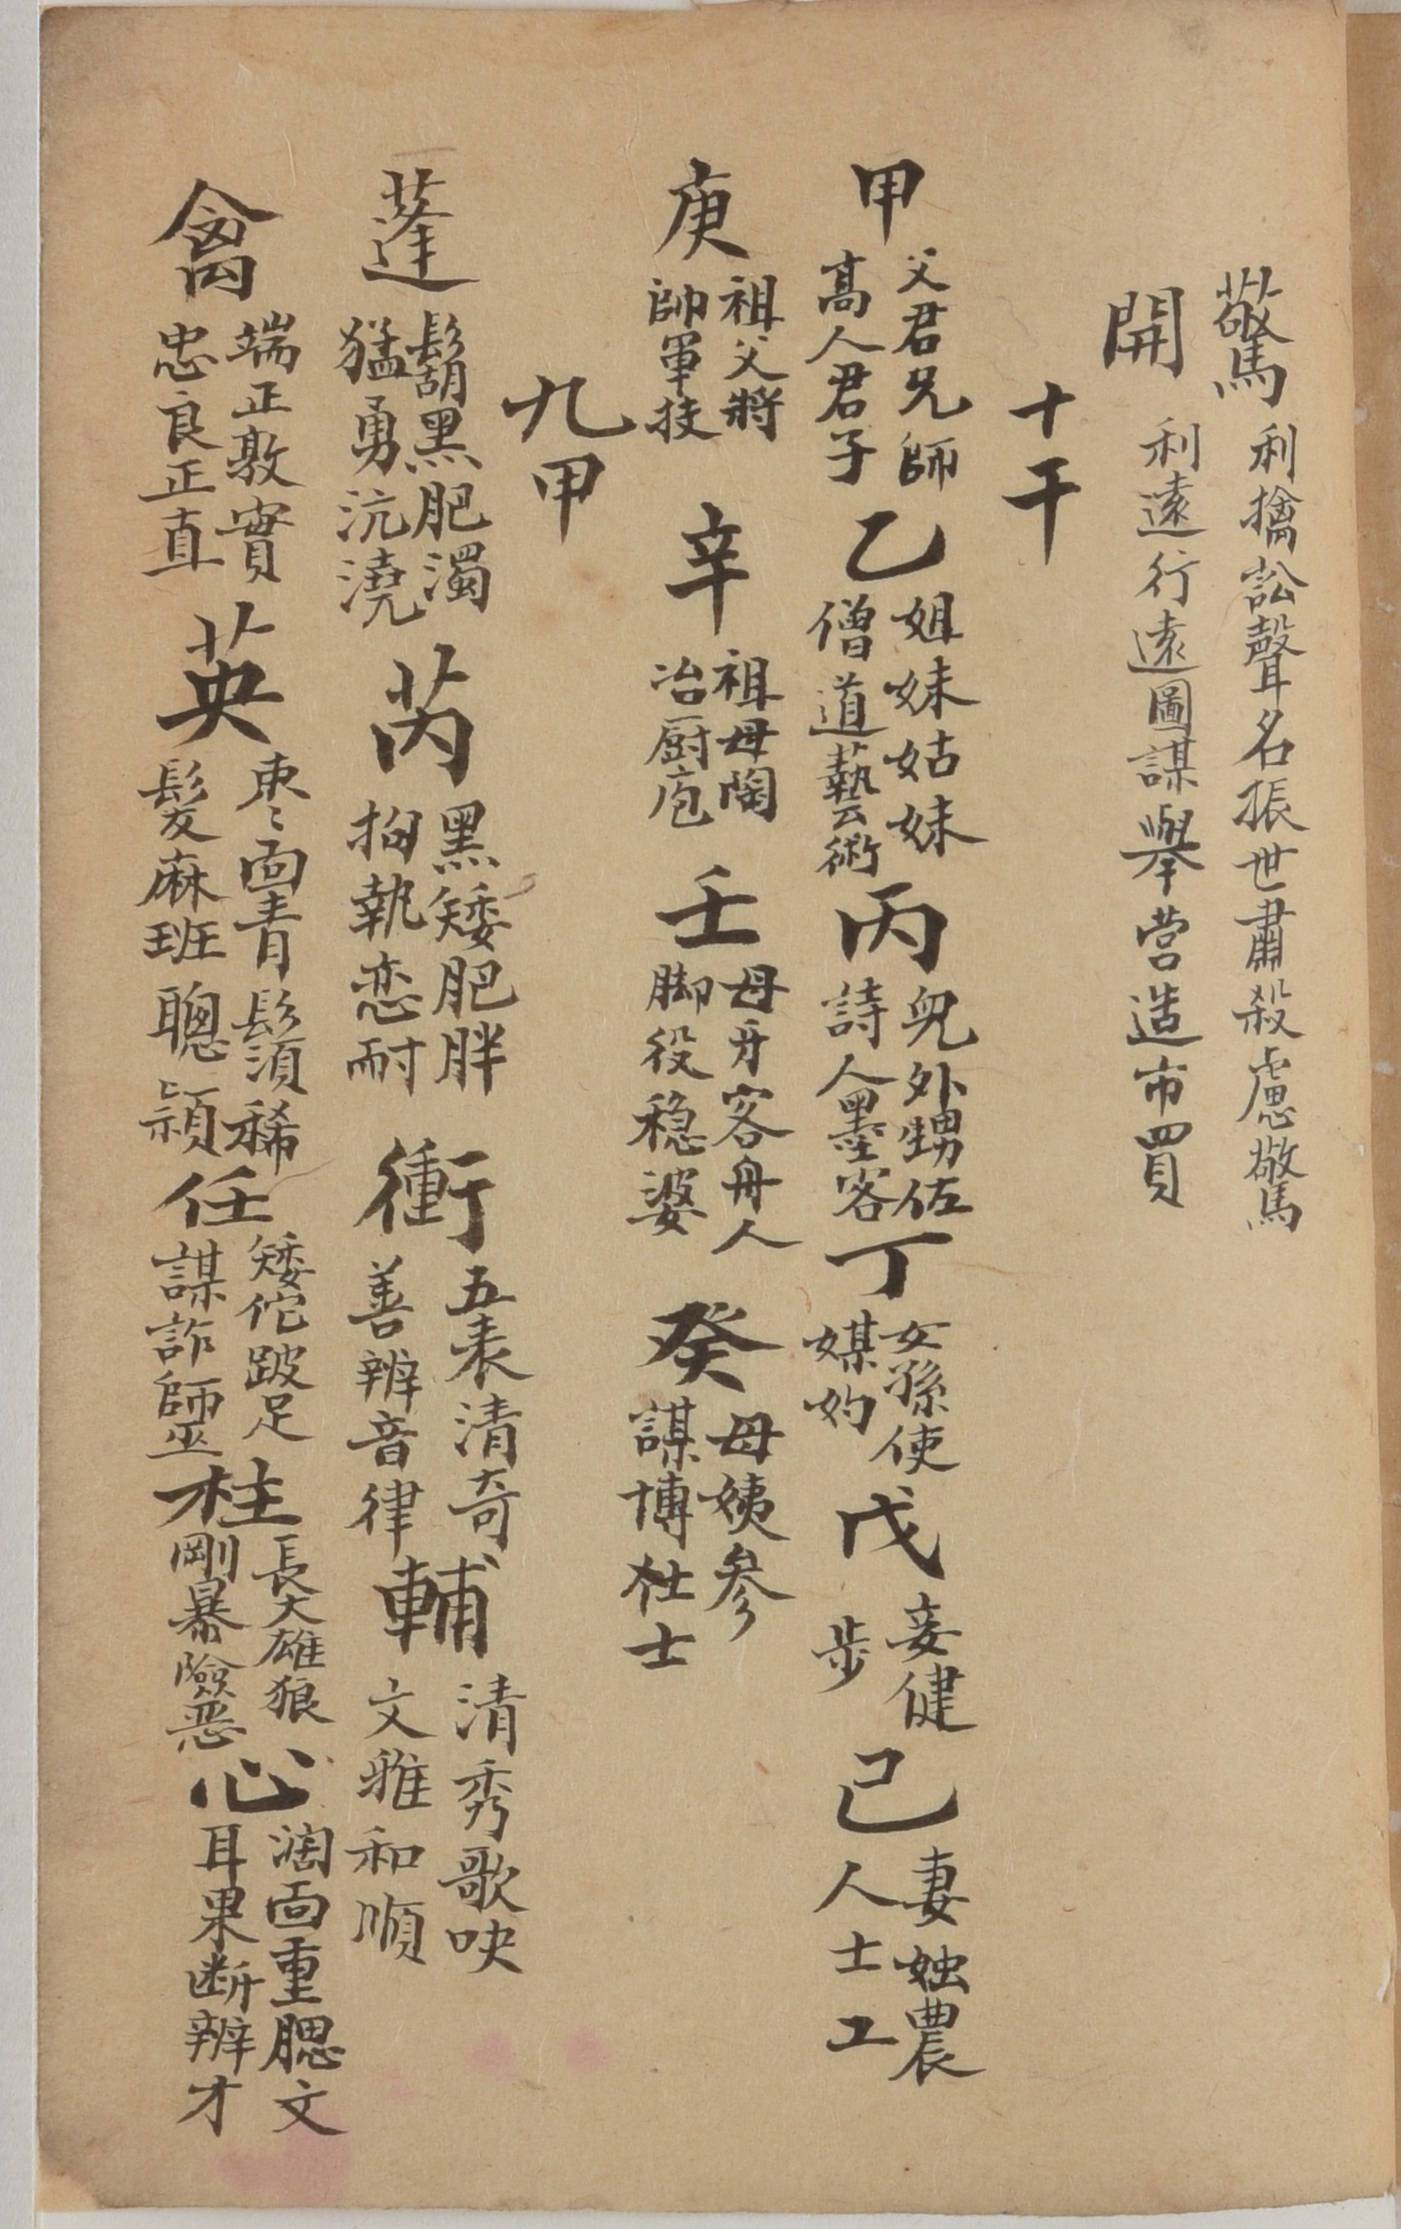 驚 利擒訟聲名振世肅殺慮驚
開 利遠行遠圖謀舉营造市買
十干
甲 父君兄師高人君子 乙 姐妹姑妹僧道藝術 丙 兒外甥佐詩人墨客 丁 女孫使媒妁 戊 妾健步 己 妻妯農人士工
庚 祖父將帥軍技 辛 祖母陶冶厨庖 壬 母牙客舟人脚役穏婆 癸 母姨参謀博仕士
九甲
蓬 鬍黑肥濁猛勇沆澆 芮 黑矮肥胖拘執恋耐 衝 五表清奇善辨音律 輔 清秀歌吷文雅和順
禽 端正敦實忠良正直 英 枣面青鬚稀髪麻班聰頴 任 矮佗跛足謀詐師巫 柱 長大雄狼剛暴險恶 心 濶面重腮文耳果断辨才